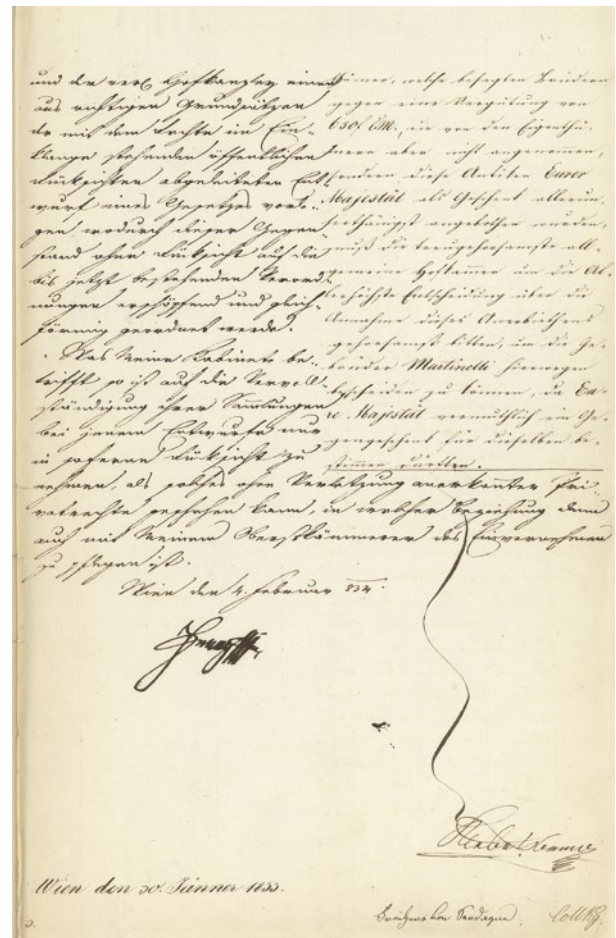 und der verl. Hofkanzley einen
aus richtigen Grundsätzen
der mit dem Rechte in Ein-
klange stehenden öffentlichen
Rücksichten abgeleiteten Ent-
wurf eines Gesetzes vorle-
gen wodurch dieser Gegen
stand ohne Rücksicht auf die
bis jetzt bestehenden Verord-
nungen erschöpfend und gleich-
förmig geordnet werde.
Was Meine Kabinete be-
trifft so ist auf die Vervoll-
ständigung ihrer Sammlungen
bei jenem Entwurfe nur
in soferne Rücksicht zu
nehmen, als solches ohne Verletzung anerkannter Pri-
vatrechte geschehen kann, in welcher Beziehung dann
auch mit Meinem Oberstkämmerer das Einvernehmen
zu pflegen ist.
Wien den 4. Februar 834.
Franz
welche besagten Brüdern
gegen eine Vergütung von
650 f CM., die von den Eigenthü-
mern aber nicht angenommen,
sondern diese Antiken Eurer
Majestät als Geschenk allerun-
terthänigst angebothen wurden,
muß die treugehorsamste all-
gemeine Hofkammer um die Al-
lerhöchste Entscheidung über die
Annahme dieses Anerbiethens
gehorsamst bitten, um die Ge-
brüder Martinelli hierwegen
bescheiden zu können, da Eu-
re Majestät vermuthlich ein Ge-
gengeschenk für dieselben be-
stimmen dürften.
Wien den 30. Jänner 1833.